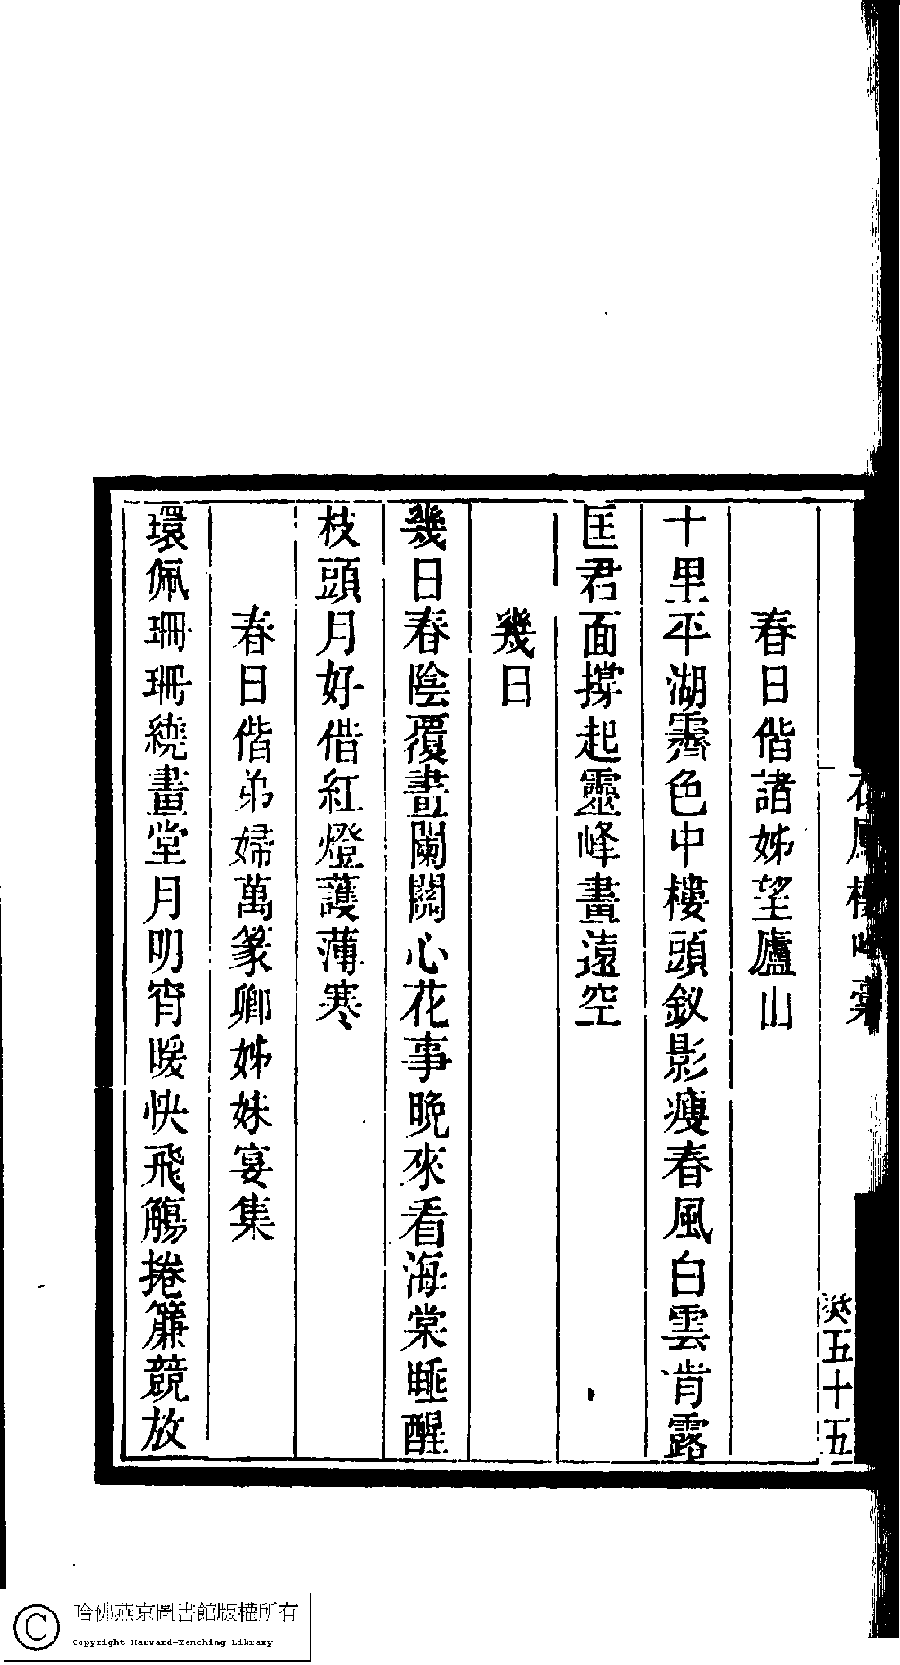 春日偕諸姊望廬山
十里平湖霽色中樓頭釵影瘦春風白雲肯露
匡君面撐起靈峰畫遠空
幾日
幾日春陰覆畫闌關心花事晚來看海棠睡醒
枝頭月好借紅燈護薄寒
春日偕弟婦萬篆卿姊妹宴集
環佩珊珊繞畫堂月明宵暖快飛觴捲簾競放
癸五十五
哈佛燕京圖書館版權所有
Copyright Harvard-Yenching Library